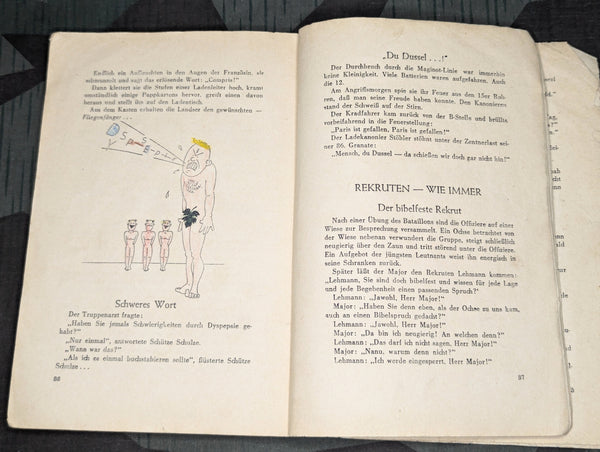 Endlich ein Aufleuchten in den Augen der Französin, sie
schmunzelt und sagt das erlösende Wort: „Compris!"
Dann klettert sie die Stufen einer Ladenleiter hoch, kramt
umständlich einige Pappkartons hervor, greift einen davon
heraus und stellt ihn auf den Ladentisch.
Aus dem Kasten erhalten die Landser den gewünschten —
Fliegenfänger . . .
Schweres Wort
Der Truppenarzt fragte:
„Haben Sie jemals Schwierigkeiten durch Dyspepsie ge-
habt?"
„Nur einmal", antwortete Schütze Schulze.
„Wann war das?"
„Als ich es einmal buchstabieren sollte", flüsterte Schütze
Schulze . . .
86
„Du Dussel . . .!"
Der Durchbruch durch die Maginot-Linie war immerhin
keine Kleinigkeit. Viele Batterien waren aufgefahren. Auch
die 12.
Am Angriffsmorgen spie sie ihr Feuer aus den 15er Roh-
ren, daß man seine Freude haben konnte. Den Kanonieren
stand der Schweiß auf der Stirn.
Der Kradfahrer kam zurück von der B-Stelle und brüllte
vorbeifahrend in die Feuerstellung:
„Paris ist gefallen, Paris ist gefallen!"
Der Ladekanonier Stößler stöhnt unter der Zentnerlast
seiner 86. Granate:
„Mensch, du Dussel — da schießen wir doch gar nicht hin!"
REKRUTEN — WIE IMMER
Der bibelfeste Rekrut
Nach einer Übung des Bataillons sind die Offiziere auf einer
Wiese zur Besprechung versammelt. Ein Ochse betrachtet von
der Wiese nebenan verwundert die Gruppe, steigt schließlich
neugierig über den Zaun und tritt störend unter die Offiziere.
Ein Aufgebot der jüngsten Leutnants weist ihn energisch in
seine Schranken zurück.
Später läßt der Major den Rekruten Lehmann kommen:
„Lehmann, Sie sind doch bibelfest und wissen für jede Lage
und jede Begebenheit einen passenden Spruch?"
Lehmann: „Jawohl, Herr Major!"
Major: „Haben Sie denn eben, als der Ochse zu uns kam,
auch an einen Bibelspruch gedacht?"
Lehmann: „Jawohl, Herr Major!"
Major: „Da bin ich neugierig! An welchen denn?"
Lehmann: „Das darf ich nicht sagen, Herr Major!"
Major: „Nanu, warum denn nicht?"
Lehmann: „Ich werde eingesperrt, Herr Major!"
87